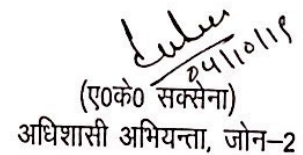 04/10/19
(ए0के0 सक्सेना)
अधिशासी अभियन्ता, जोन–2